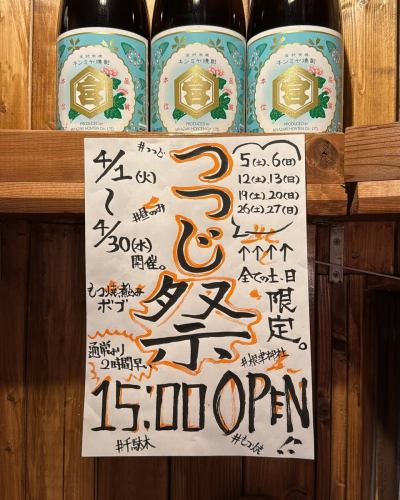 宮崎本店
キンミヤ焼酎
キンミヤ焼酎
キンミヤ焼酎
PRODUCED BY
MIYAZAKI HONTEN CO., LTD.
#つつじ
つつじ祭
4/1(火)
〜
4/30(水)
開催。
#昼のみ
もつ焼煮込み
ボブ
通常より
2時間早、
5(土)、6(日)
12(土)、13(日)
19(土)、20(日)
26(土)、27(日)
↑↑↑↑
全ての土、日
限定。
#根津神社
15:00 OPEN!!
#千駄木
#もつ焼